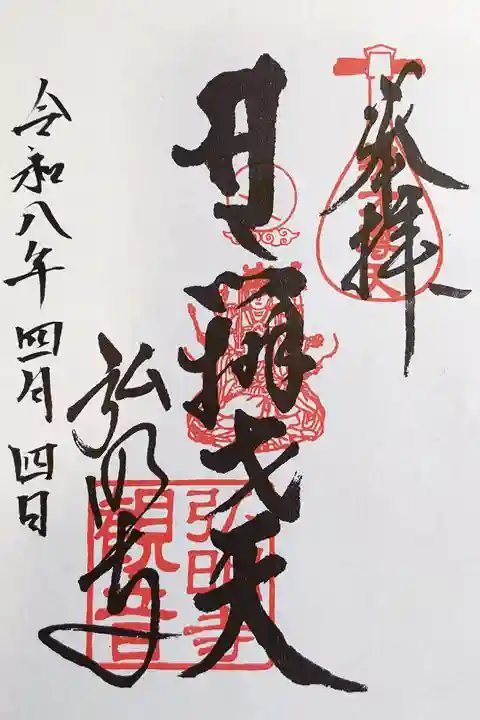 奉拝
辨才天
弘明寺
弘明寺
觀音
令和八年四月四日